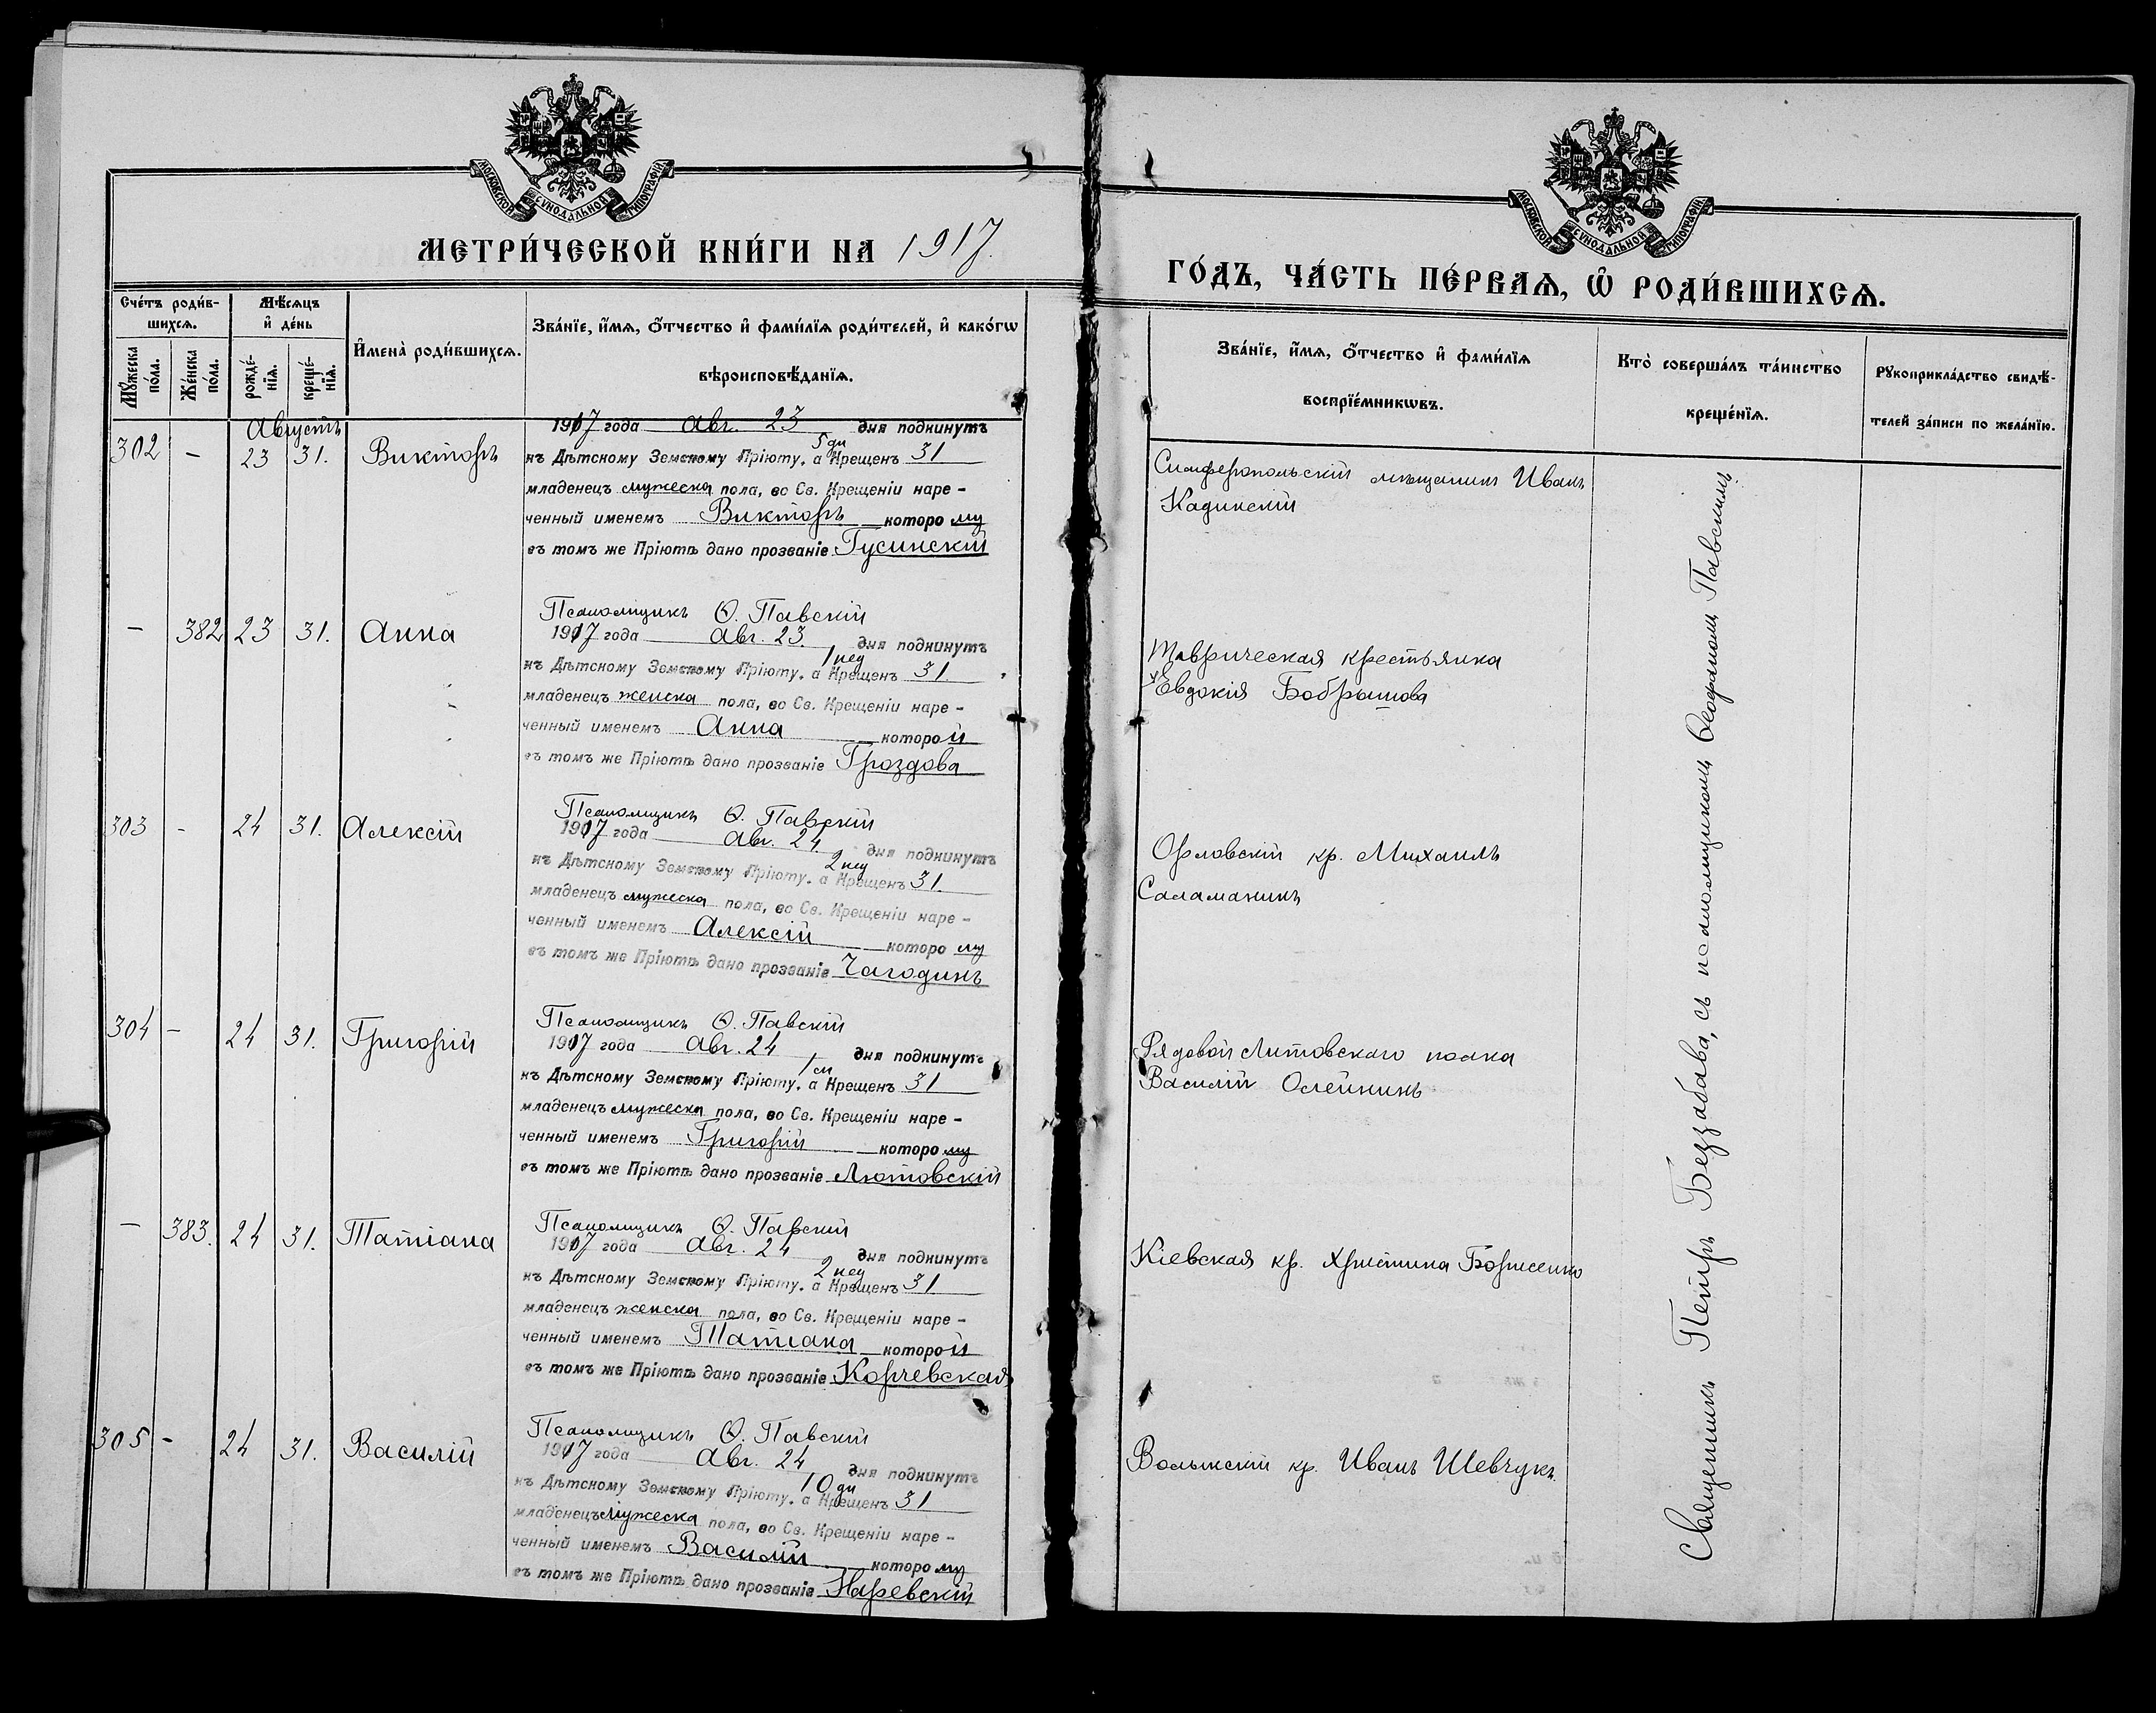 МОСКОВСКОЙ СѴНОДАЛЬНОЙ ТИПОГРАФІИ
МЕТРИ́ЧЕСКОЙ КНИ́ГИ НА 1917.
Сче́тъ роди́в-
шихсѧ.
Мꙋжеска по́ла.
Же́нска по́ла.
Мѣ́сѧцъ
и҆ де́нь
рожде́-
нїѧ.
креще́-
нїѧ.
И҆мена̀ роди́вшихсѧ.
Зва́нїе, и҆́мѧ, ѻ҆́тчество и҆ фами́лїѧ роди́телей, и҆ како́гѡ
вѣроисповѣ́данїѧ.
Августъ
302 - 23 31. Викторъ
1917 года авг. 23 дня подкинутъ
5 дн
къ Дѣтскому Земскому Пріюту. а Крещенъ 31
младенецъ мужеска пола, во Св. Крещеніи наре-
ченный именемъ Викторъ которому
въ томъ же Пріютѣ дано прозваніе Гусинскій
Псаломщикъ Ѳ. Павскій
- 382 23 31. Анна
1917 года авг. 23. дня подкинутъ
1 нед
къ Дѣтскому Земскому Пріюту. а Крещенъ 31
младенецъ женска пола, во Св. Крещеніи наре-
ченный именемъ Анна которой
въ томъ же Пріютѣ дано прозваніе Гроздова
Псаломщикъ Ѳ. Павскій
303 - 24 31. Алексій
1917 года авг. 24. дня подкинутъ
2 нед
къ Дѣтскому Земскому Пріюту. а Крещенъ 31.
младенецъ мужеска пола, во Св. Крещеніи наре-
ченный именемъ Алексій которому
въ томъ же Пріютѣ дано прозваніе Чагодинъ
Псаломщикъ Ѳ. Павскій
304 - 24 31. Григорій
1917 года авг. 24 дня подкинутъ
1 м
къ Дѣтскому Земскому Пріюту. а Крещенъ 31
младенецъ мужеска пола, во Св. Крещеніи наре-
ченный именемъ Григорій которому
въ томъ же Пріютѣ дано прозваніе Лютовскій
Псаломщикъ Ѳ. Павскій
- 383. 24 31. Татіана
1917 года авг. 24 дня подкинутъ
2 нед
къ Дѣтскому Земскому Пріюту. а Крещенъ 31
младенецъ женска пола, во Св. Крещеніи наре-
ченный именемъ Татіана которой
въ томъ же Пріютѣ дано прозваніе Корчевская
Псаломщикъ Ѳ. Павскій
305 - 24 31. Василій
1917 года авг. 24 дня подкинутъ
10 дн
къ Дѣтскому Земскому Пріюту. а Крещенъ 31
младенецъ мужеска пола, во Св. Крещеніи наре-
ченный именемъ Василій которому
въ томъ же Пріютѣ дано прозваніе Наревскій
МОСКОВСКОЙ СѴНОДАЛЬНОЙ ТИПОГРАФІИ
ГО́ДЪ, ЧА́СТЬ ПЕ́РВАѦ, Ѡ҆ РОДИ́ВШИХСѦ.
Зва́нїе, и҆́мѧ, ѻ҆́тчество и҆ фами́лїѧ
воспрїе́мникѡвъ.
Кто̀ соверша́лъ та́инство
креще́нїѧ.
Рꙋкоприкла́дство свидѣ́-
телей за́писи по жела́нїю.
Симферопольскій мѣщанинъ Иванъ
Кадинскій
Таврическая крестьянка
Евдокія Бобрышова
Орловскій кр. Михаилъ
Саламакинъ
Рядовой Литовскаго полка
Василій Олейникъ
Кіевская кр. Христина Борисенко
Волынскій кр. Иванъ Шевчукъ.
Священникъ Петръ Беззабава, съ псаломщикомъ Ѳеофиломъ Павскимъ.